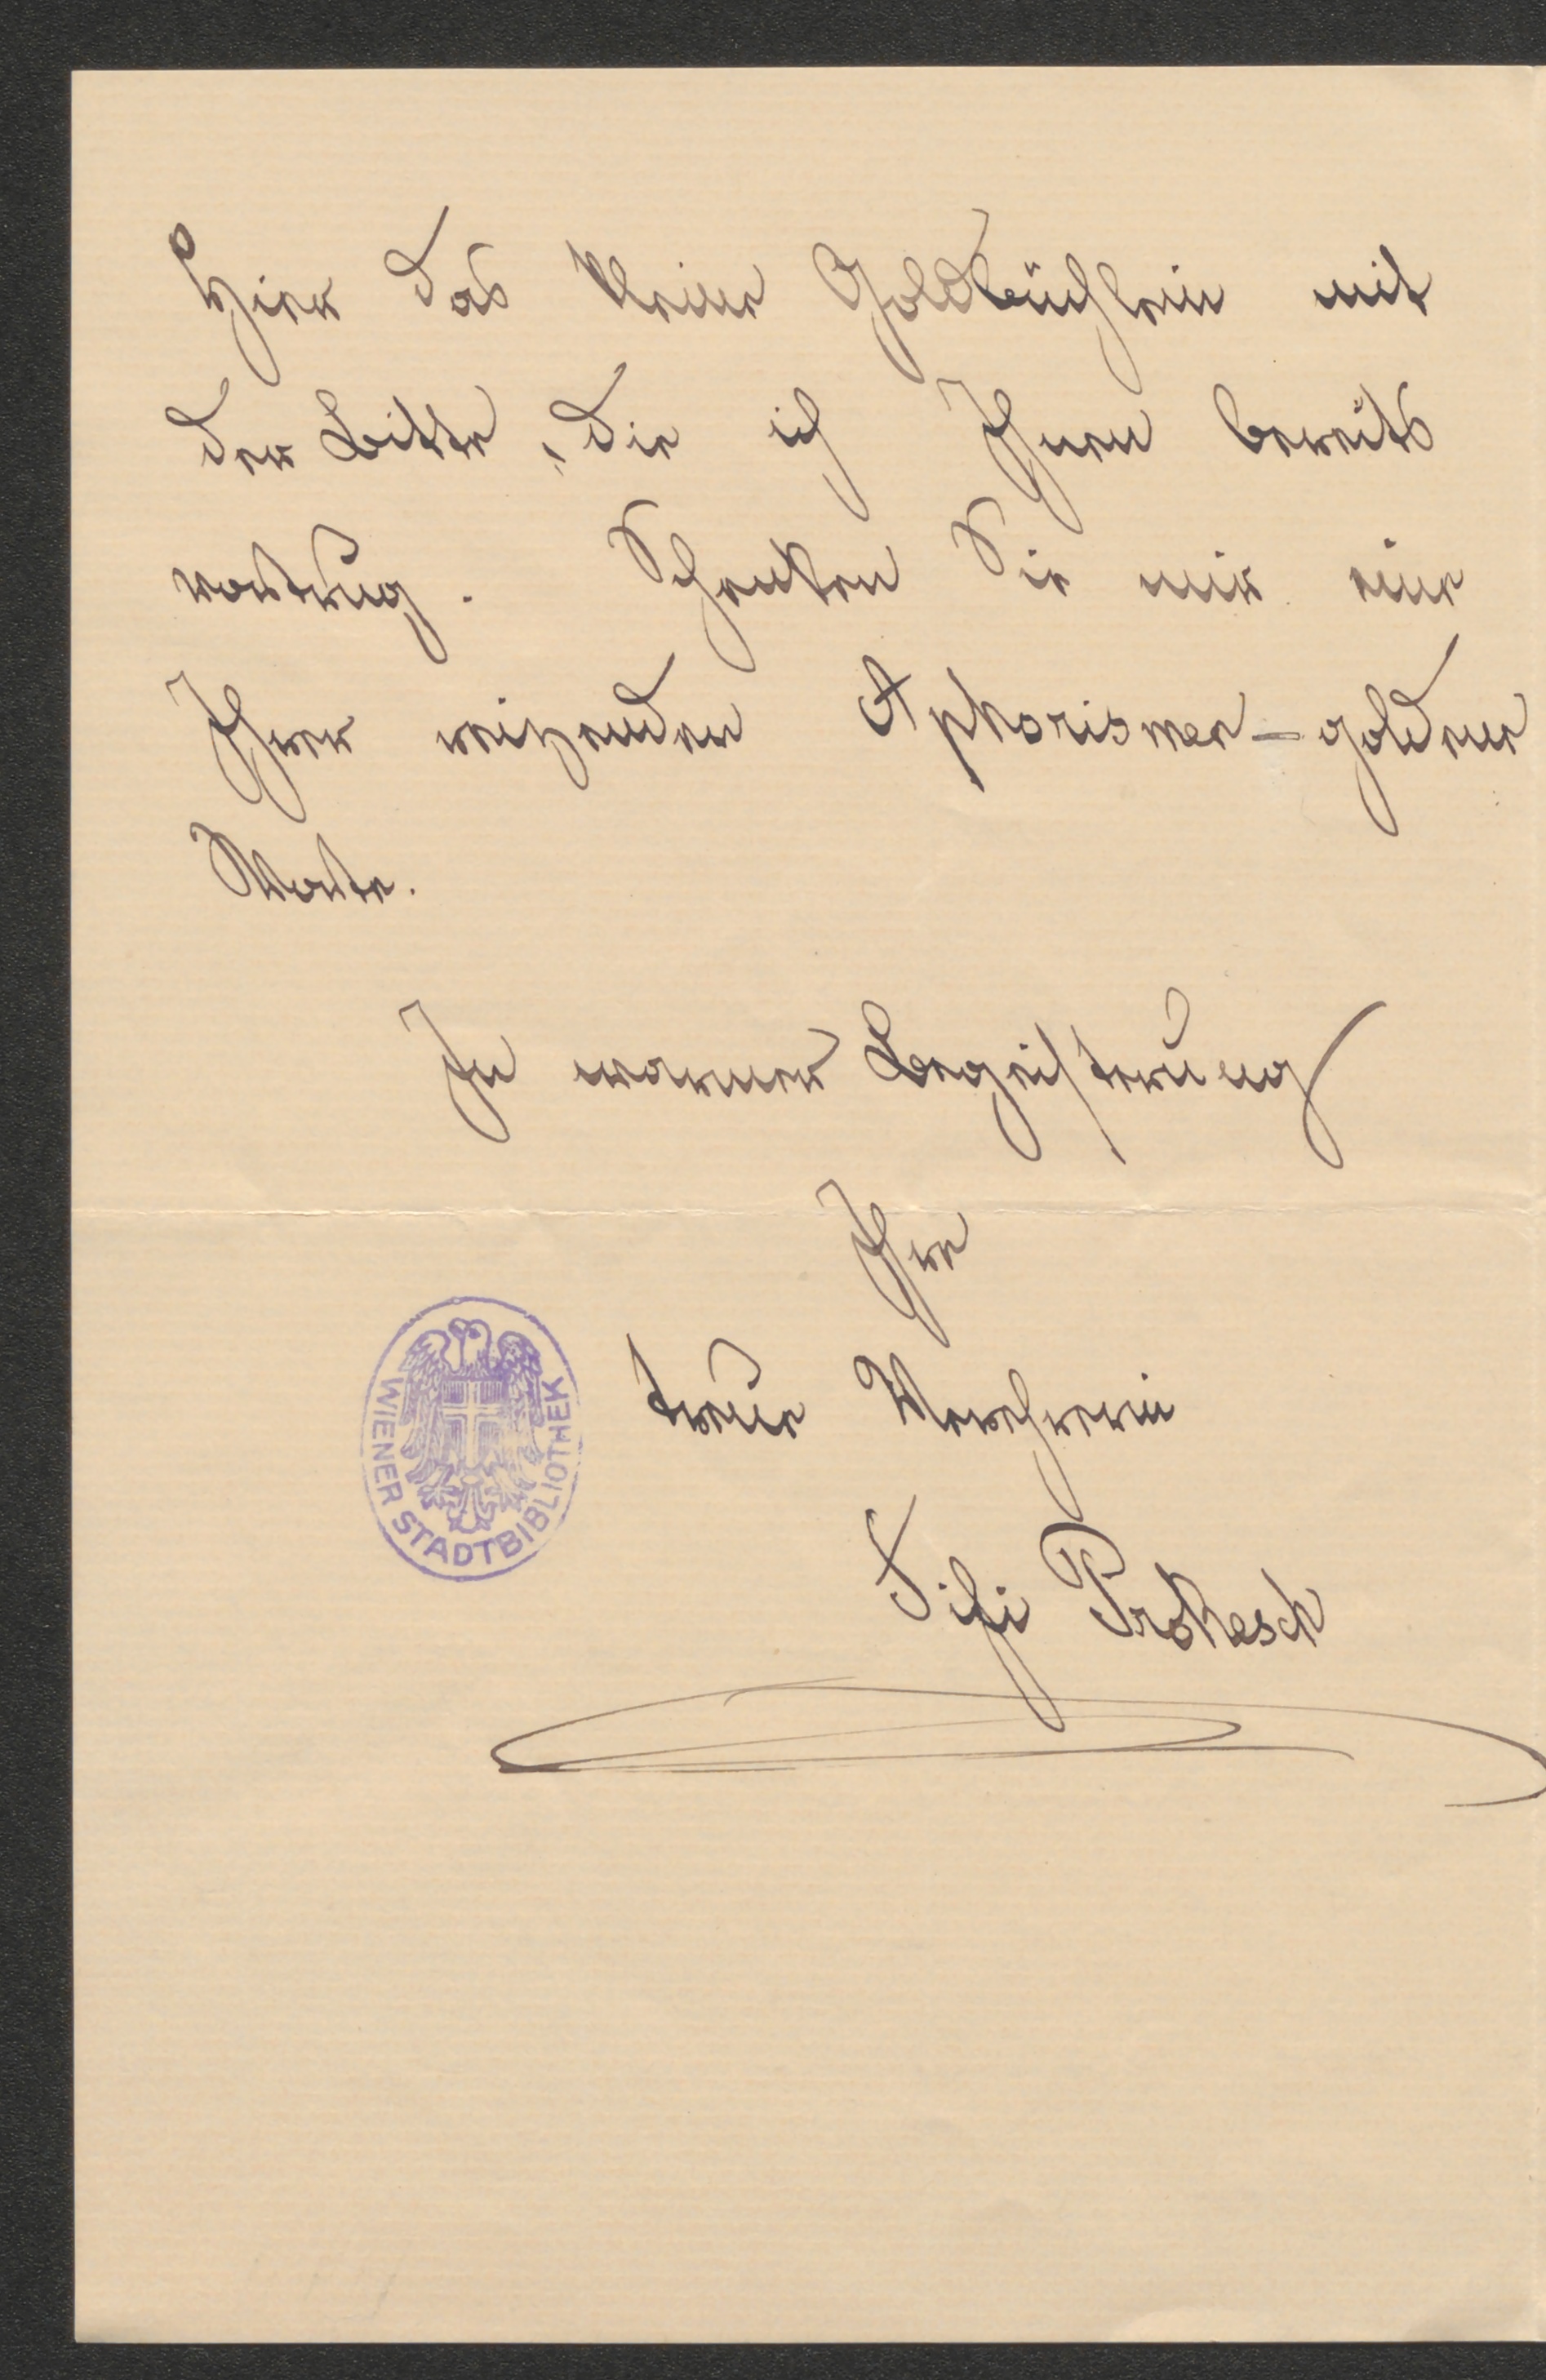 Hier das kleine Goldbüchlein mit
der Bitte, die ich Ihnen bereits
vortrug. Schenken Sie mir eine
Ihrer reizenden Aphorismen – goldene
Worte.
In warmer Begeisterung
Ihre
treue Verehrerin
Fifi Prokesch
WIENER STADTBIBLIOTHEK